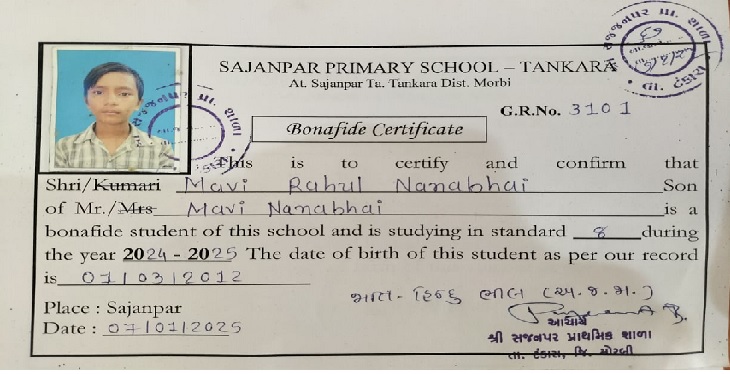 SAJANPAR PRIMARY SCHOOL – TANKARA
At. Sajanpar Ta. Tankara Dist. Morbi
G.R.No. 3101
Bonafide Certificate
This is to certify and confirm that
Shri/Kumari Mavi Rahul Nanabhai Son
of Mr./Mrs Mavi Nanabhai is a
bonafide student of this school and is studying in standard 8 during
the year 2024 - 2025 The date of birth of this student as per our record
is 07/03/2012
Place : Sajanpar
Date : 07/01/2025
આચાર્ય
શ્રી સજનપર પ્રાથમિક શાળા
તા. ટંકારા, જિ. મોરબી